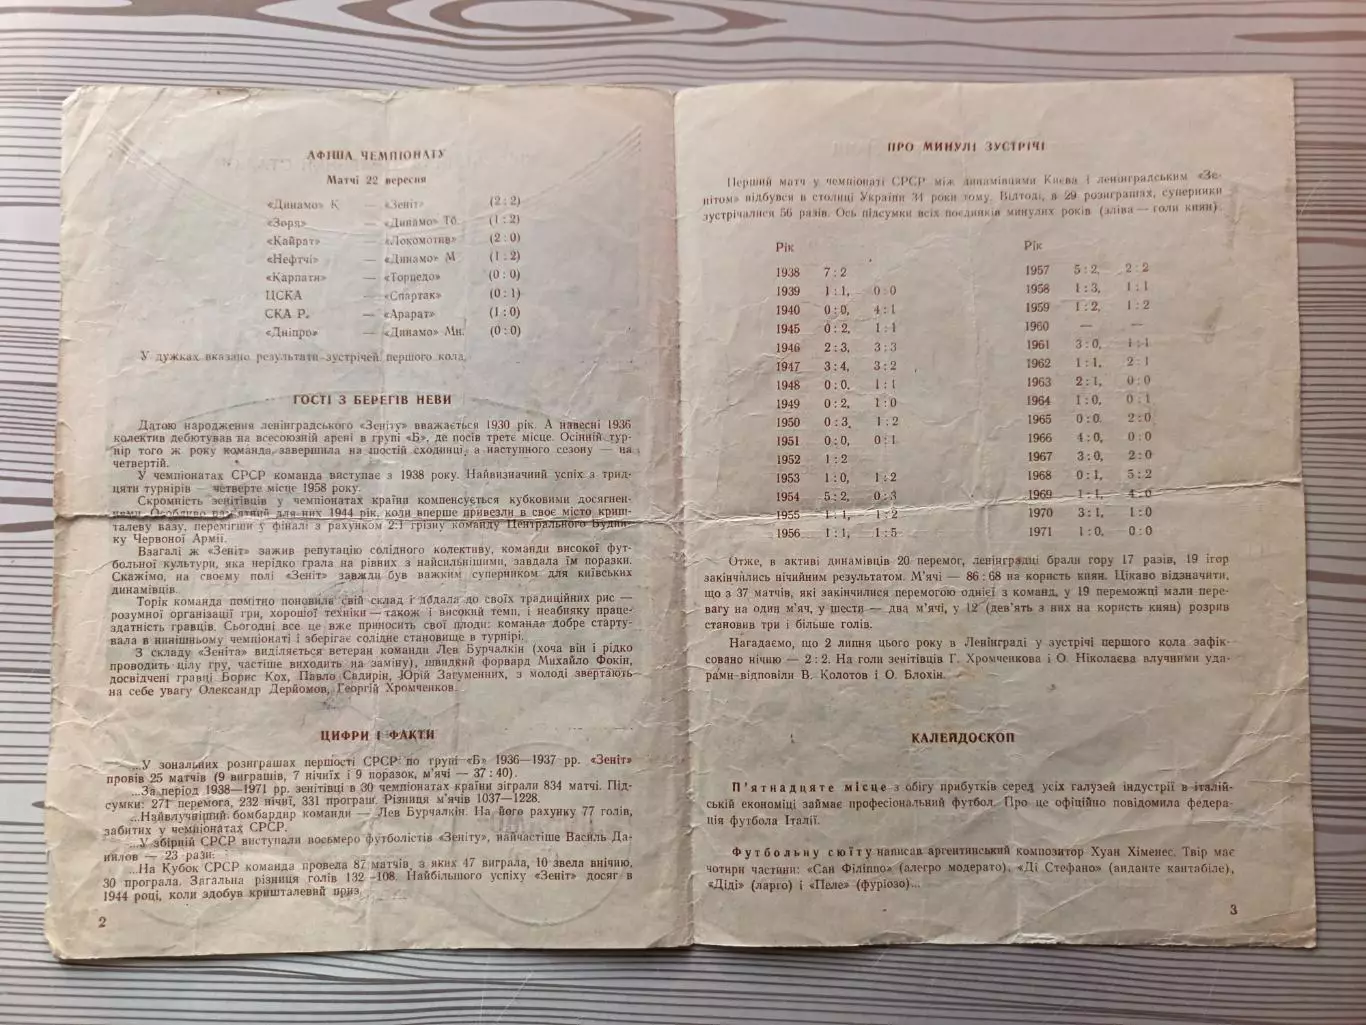 АФІША ЧЕМПІОНАТУ
Матчі 22 вересня
«Динамо» К — «Зеніт» (2:2)
«Зоря» — «Динамо» Тб. (1:2)
«Кайрат» — «Локомотив» (2:0)
«Нефтчі» — «Динамо» М. (1:2)
«Карпати» — «Торпедо» (0:0)
ЦСКА — «Спартак» (0:1)
СКА Р. — «Арарат» (1:0)
«Дніпро» — «Динамо» Мн. (0:0)
У дужках вказано результати зустрічей першого кола.
ГОСТІ З БЕРЕГІВ НЕВИ
Датою народження ленінградського «Зеніту» вважається 1930 рік. А навесні 1936
колектив дебютував на всесоюзній арені в групі «Б», де посів третє місце. Осінній тур-
нір того ж року команда завершила на шостій сходинці, а наступного сезону — на
четвертій.
У чемпіонатах СРСР команда виступає з 1938 року. Найвизначний успіх з трид-
цяти турнірів — четверте місце 1958 року.
Скромність зенітівців у чемпіонатах країни компенсується кубковими досягнен-
нями. Особливо пам'ятний для них 1944 рік, коли вперше привезли в своє місто криш-
талеву вазу, перемігши у фіналі з рахунком 2:1 грізну команду Центрального Будин-
ку Червоної Армії.
Взагалі ж «Зеніт» зажив репутацію солідного колективу, команди високої фут-
больної культури, яка нерідко грала на рівних з найсильнішими, завдала їм поразки.
Скажімо, на своєму полі «Зеніт» завжди був важким суперником для київських
динамівців.
Торік команда помітно поновила свій склад і додала до своїх традиційних рис —
розумної організації гри, хорошої техніки — також і високий темп, і неабияку праце-
здатність гравців. Сьогодні все це вже приносить свої плоди: команда добре старту-
вала в нинішньому чемпіонаті і зберігає солідне становище в турнірі.
З складу «Зеніта» виділяється ветеран команди Лев Бурчалкін (хоча він і рідко
проводить цілу гру, частіше виходить на заміну), швидкий форвард Михайло Фокін,
досвідчені гравці Борис Кох, Павло Садирін, Юрій Загуменних, з молоді звертають
на себе увагу Олександр Дерйомов, Георгій Хромченков.
ЦИФРИ І ФАКТИ
...У зональних розиграшах першості СРСР по групі «Б» 1936—1937 рр. «Зеніт»
провів 25 матчів (9 виграшів, 7 нічиїх і 9 поразок, м'ячі — 37:40).
...За період 1938—1971 рр. зенітівці в 30 чемпіонатах країни зіграли 834 матчі. Під-
сумки: 271 перемога, 232 нічиї, 331 програш. Різниця м'ячів 1037—1228.
...Найвлучніший бомбардир команди — Лев Бурчалкін. На його рахунку 77 голів,
забитих у чемпіонатах СРСР.
...У збірній СРСР виступали восьмеро футболістів «Зеніту», найчастіше Василь Да-
нилов — 23 рази.
...На Кубок СРСР команда провела 87 матчів, з яких 47 виграла, 10 звела внічию,
30 програла. Загальна різниця голів 132—108. Найбільшого успіху «Зеніт» досяг в
1944 році, коли здобув кришталевий приз.
2
ПРО МИНУЛІ ЗУСТРІЧІ
Перший матч у чемпіонаті СРСР між динамівцями Києва і ленінградським «Зе-
нітом» відбувся в столиці України 34 роки тому. Відтоді, в 29 розиграшах, суперники
зустрічалися 56 разів. Ось підсумки всіх поєдинків минулих років (зліва — голи киян)
Рік
1938 7:2
1939 1:1, 0:0
1940 0:0, 4:1
1945 0:2, 1:1
1946 2:3, 3:3
1947 3:4, 3:2
1948 0:0, 1:1
1949 0:2, 1:0
1950 0:3, 1:2
1951 0:0, 0:1
1952 1:2
1953 1:0, 1:2
1954 5:2, 0:3
1955 1:1, 1:2
1956 1:1, 1:5
Рік
1957 5:2, 2:2
1958 1:3, 1:1
1959 1:2, 1:2
1960 — —
1961 3:0, 1:1
1962 1:1, 2:1
1963 2:1, 0:0
1964 1:0, 0:1
1965 0:0, 2:0
1966 4:0, 0:0
1967 3:0, 2:0
1968 0:1, 5:2
1969 1:1, 4:0
1970 3:1, 1:0
1971 1:0, 0:0
Отже, в активі динамівців 20 перемог, ленінградці брали гору 17 разів, 19 ігор
закінчились нічийним результатом. М'ячі — 86:68 на користь киян. Цікаво відзначити,
що з 37 матчів, які закінчилися перемогою однієї з команд, у 19 переможці мали пере-
вагу на один м'яч, у шести — два м'ячі, у 12 (дев'ять з них на користь киян) розрив
становив три і більше голів.
Нагадаємо, що 2 липня цього року в Ленінграді у зустрічі першого кола зафік-
совано нічию — 2:2. На голи зенітівців Г. Хромченкова і О. Ніколаєва влучними уда-
рами відповіли В. Колотов і О. Блохін.
КАЛЕЙДОСКОП
П'ятнадцяте місце з обігу прибутків серед усіх галузей індустрії в італій-
ській економіці займає професіональний футбол. Про це офіційно повідомила федера-
ція футбола Італії.
Футбольну сюїту написав аргентинський композитор Хуан Хіменес. Твір має
чотири частини: «Сан Філіппо» (алегро модерато), «Ді Стефано» (анданте кантабіле),
«Діді» (ларго) і «Пеле» (фуріозо)...
3